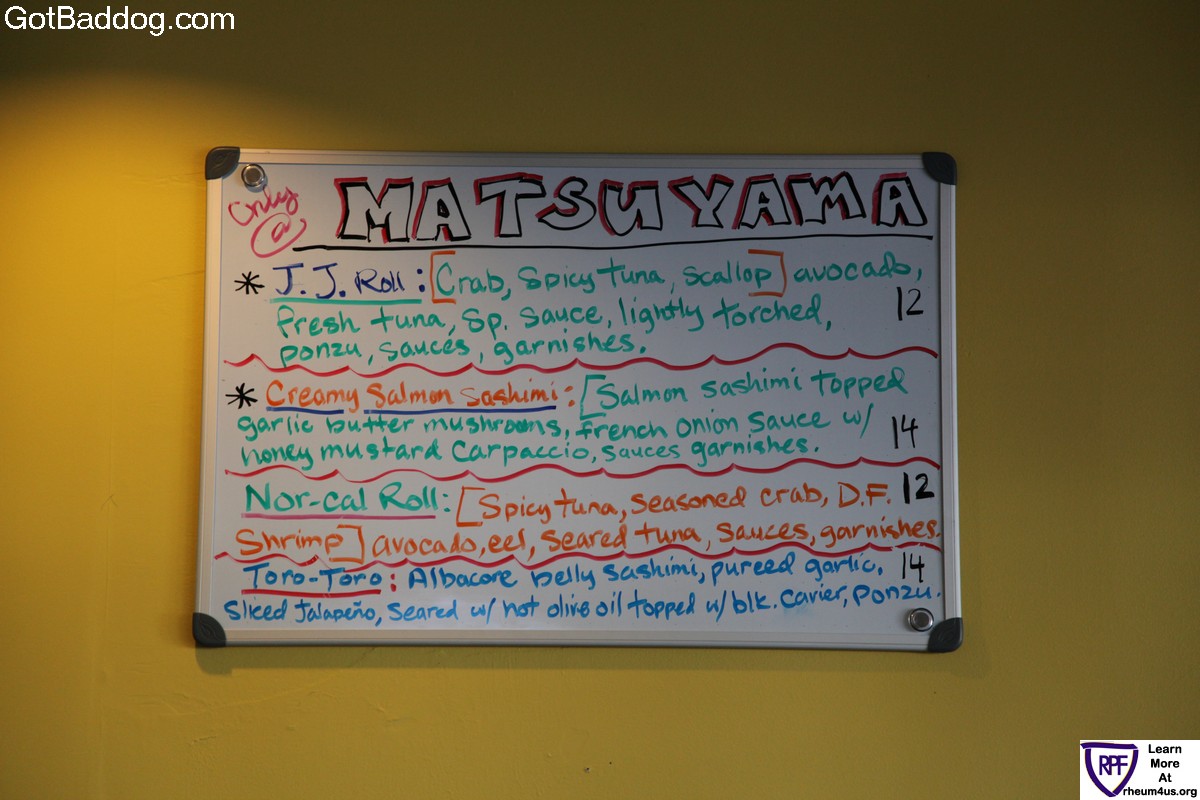 GotBaddog.com
Only @ MATSUYAMA
* J.J. Roll: [Crab, Spicy tuna, scallop] avocado,
fresh tuna, Sp. sauce, lightly torched, 12
ponzu, sauces, garnishes.
* Creamy Salmon Sashimi: [Salmon sashimi topped
garlic butter mushrooms, french onion sauce w/ 14
honey mustard Carpaccio, sauces garnishes.
Nor-cal Roll: [Spicy tuna, seasoned crab, D.F. 12
Shrimp] avocado, eel, seared tuna, sauces, garnishes.
Toro-Toro: Albacore belly sashimi, pureed garlic, 14
Sliced Jalapeño, seared w/ hot olive oil topped w/ blk. cavier, ponzu.
RPF
Learn
More
At
rheum4us.org